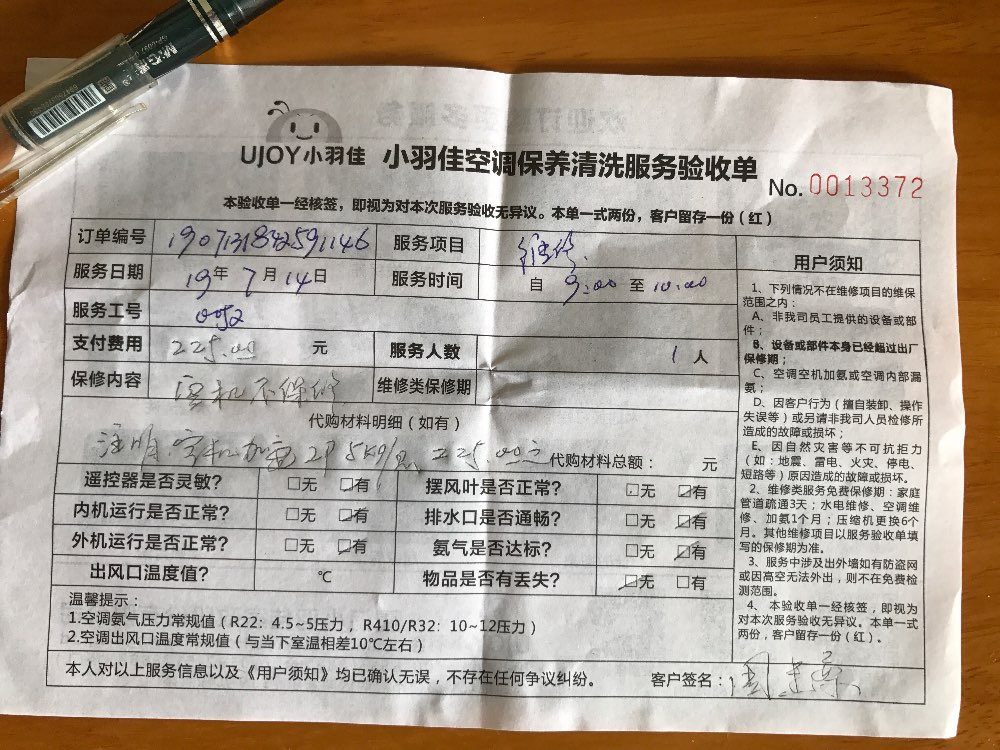 M&G
UJOY小羽佳 小羽佳空调保养清洗服务验收单
No. 0013372
本验收单一经核签，即视为对本次服务验收无异议。本单一式两份，客户留存一份（红）
订单编号 1907131842591146 服务项目 维修
服务日期 19年7月14日 服务时间 自 9:00 至 10:00
服务工号 0052
支付费用 225.00 元 服务人数 1 人
保修内容 空机不保修 维修类保修期
代购材料明细（如有）
注明:空机加氟 225.00元 代购材料总额： 元
遥控器是否灵敏? □无 ☑有 摆风叶是否正常? □无 ☑有
内机运行是否正常? □无 ☑有 排水口是否通畅? □无 ☑有
外机运行是否正常? □无 ☑有 氨气是否达标? □无 ☑有
出风口温度值? ℃ 物品是否有丢失? ☑无 □有
温馨提示：
1.空调氨气压力常规值（R22：4.5~5压力，R410/R32：10~12压力）
2.空调出风口温度常规值（与当下室温相差10℃左右）
本人对以上服务信息以及《用户须知》均已确认无误，不存在任何争议纠纷。 客户签名：
用户须知
1、下列情况不在维修项目的维保
范围之内：
A、非我司员工提供的设备或部
件；
B、设备或部件本身已经超过出厂
保修期；
C、空调空机加氨或空调内部漏
氨；
D、因客户行为（擅自装卸、操作
失误等）或另请非我司人员检修所
造成的故障或损坏；
E、因自然灾害等不可抗拒力
（如：地震、雷电、火灾、停电、
短路等）原因造成的故障或损坏。
2、维修类服务免费保修期：家庭
管道疏通3天；水电维修、空调维
修、加氨1个月；压缩机更换6个
月。其他维修项目以服务验收单填
写的保修期为准。
3、服务中涉及出外墙如有防盗网
或因高空无法外出，则不在免费检
测范围。
4、本验收单一经核签，即视为
对本次服务验收无异议。本单一式
两份，客户留存一份（红）。